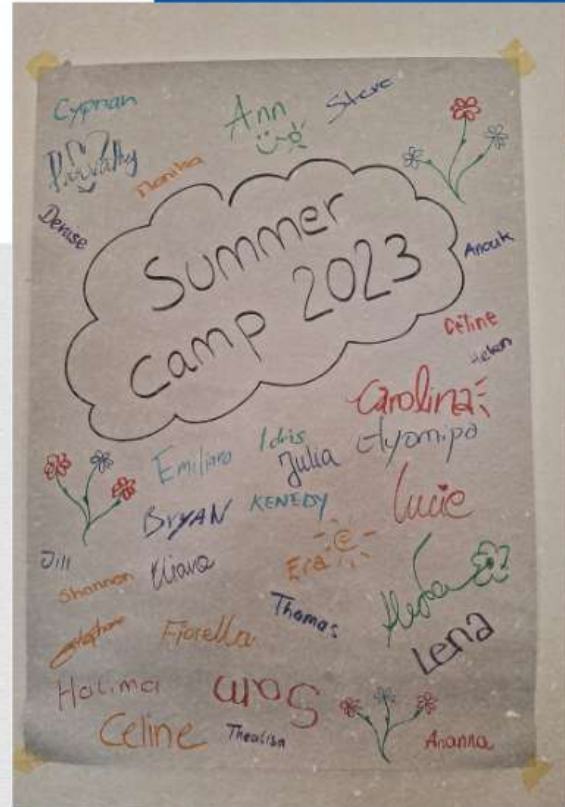 Cyprian
Ann
Steve
Parvathy
Monika
Denise
Summer
Camp 2023
Anouk
Céline
Helen
Carolina
Idris
Emiliano
Julia
BRYAN
KENEDY
Lucie
Jill
Shannon
Kiara
Era
Thomas
Stephane
Fiorella
Lena
Halima
Sam
Celine
Arianna